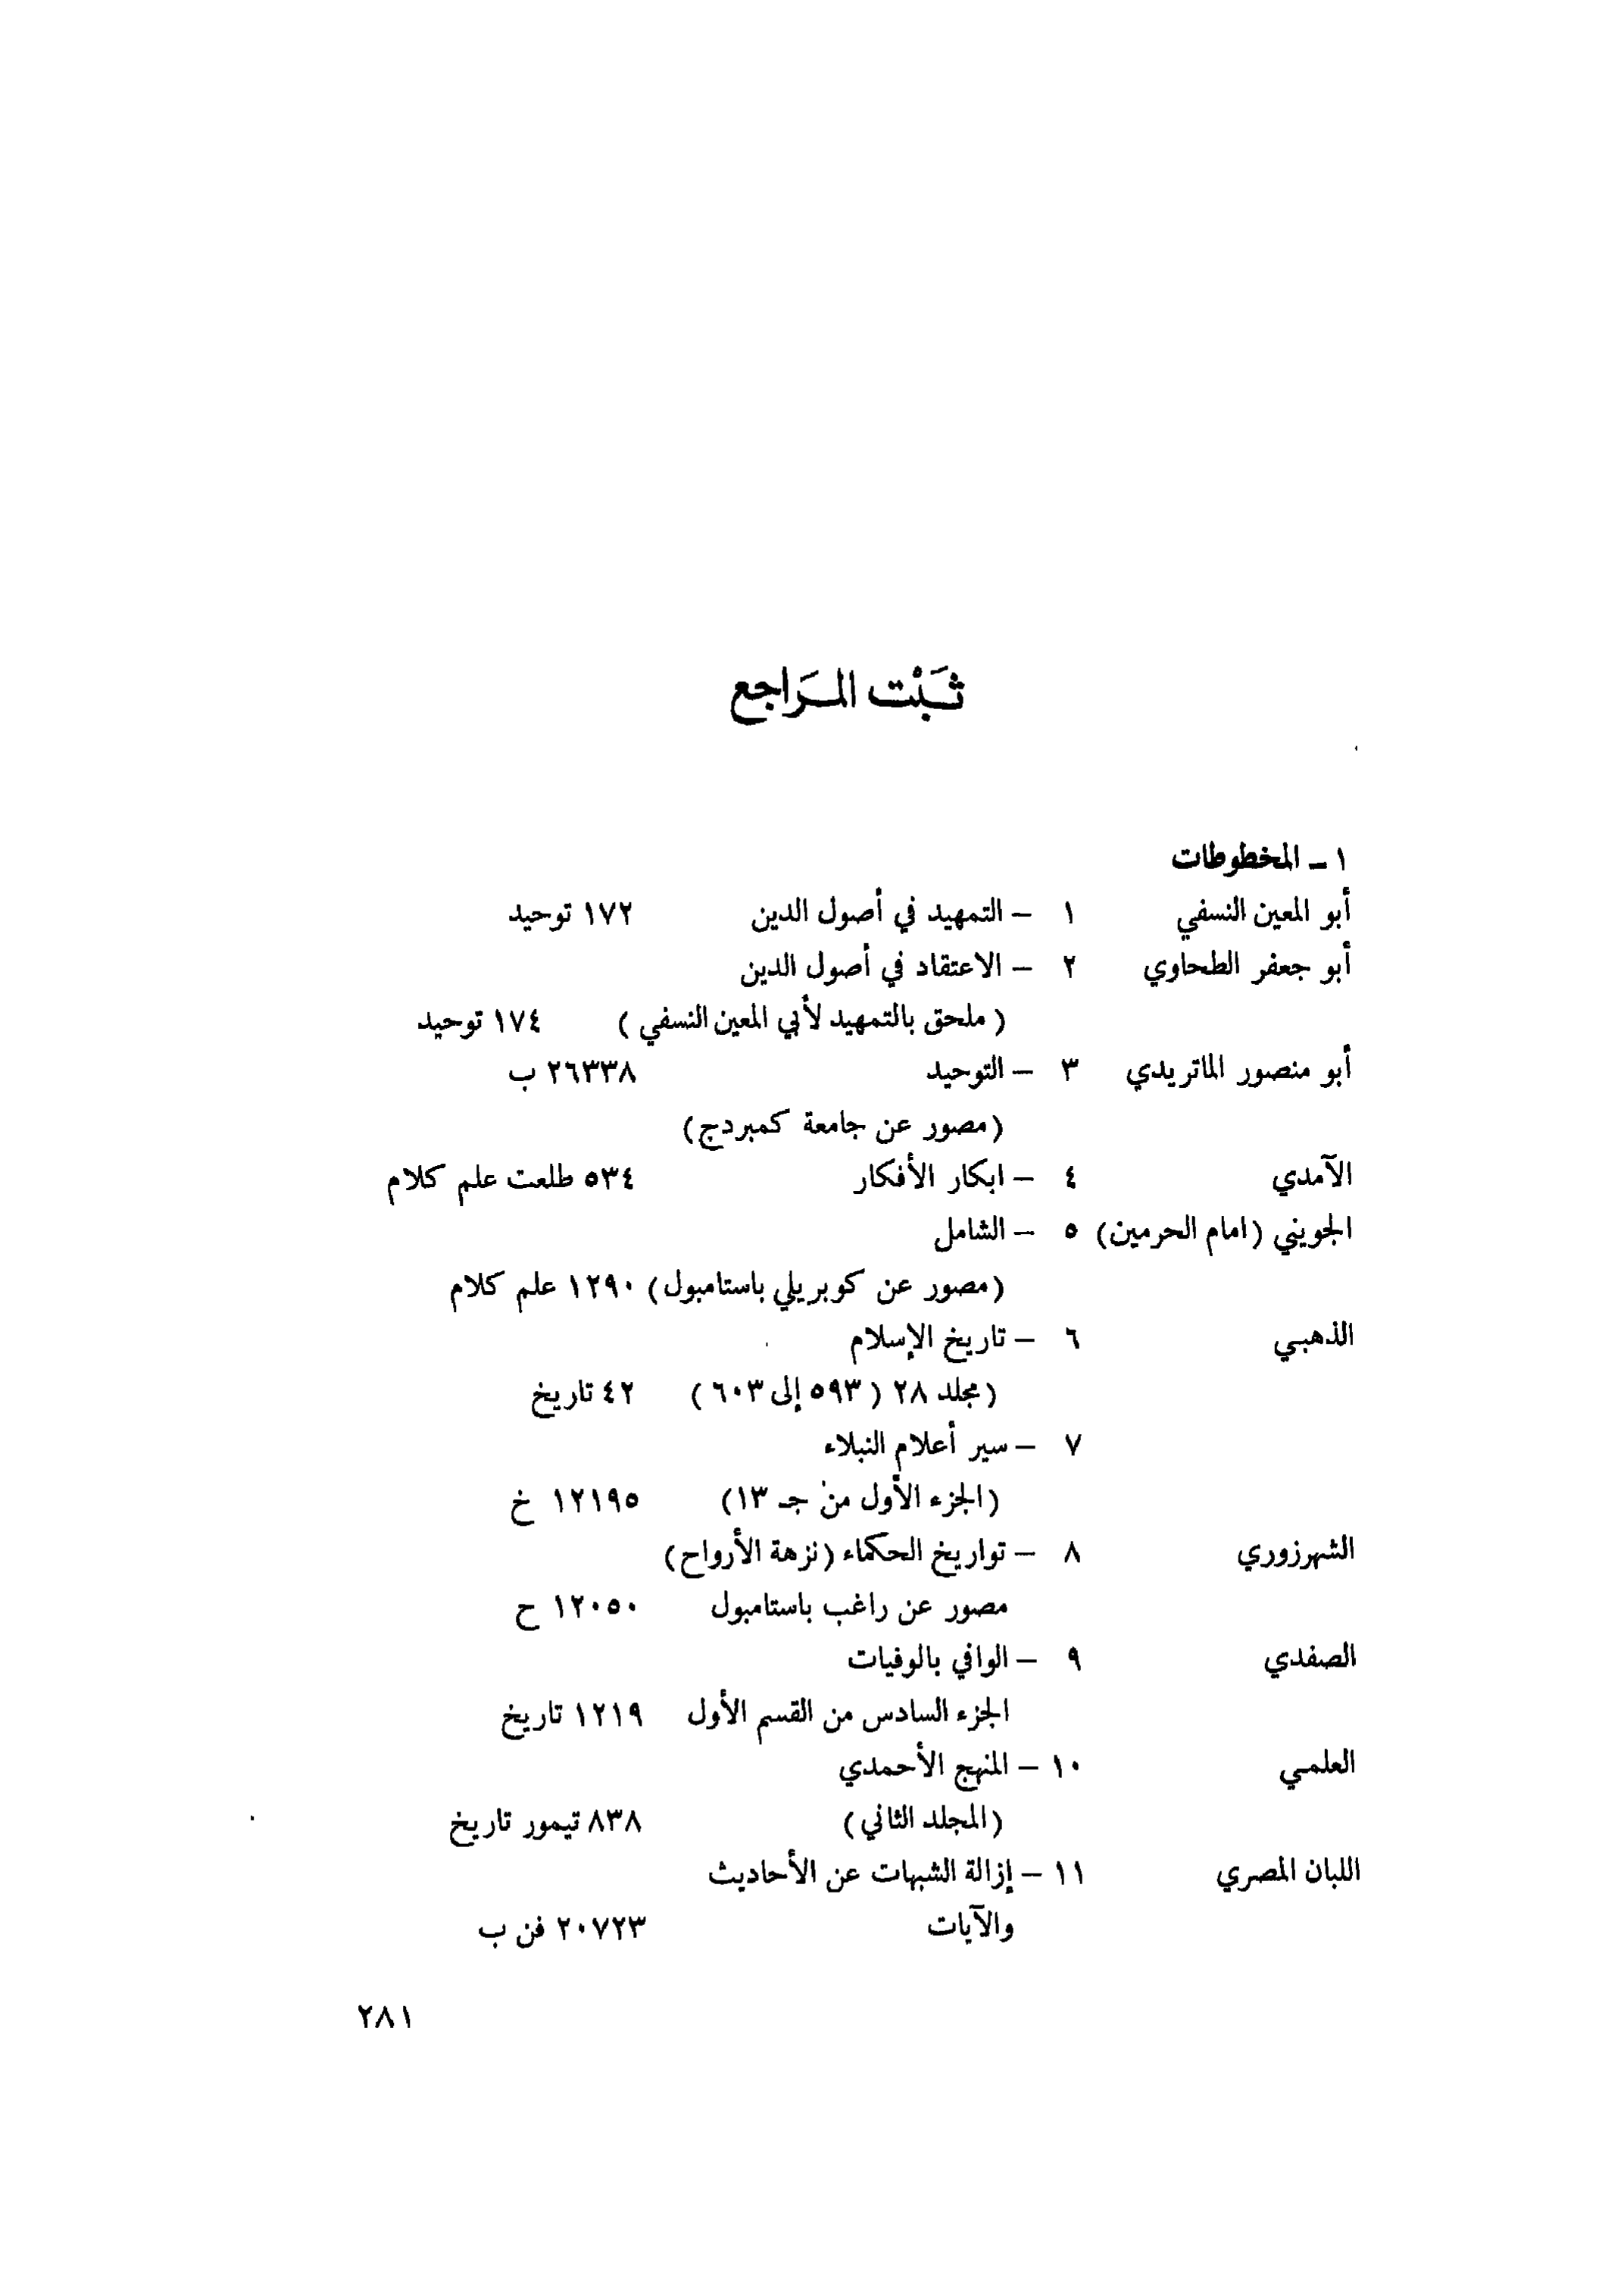 ثَبْت المَراجع
١ – المخطوطات
أبو المعين النسفي ١ – التمهيد في أصول الدين ١٧٢ توحيد
أبو جعفر الطحاوي ٢ – الاعتقاد في أصول الدين
( ملحق بالتمهيد لأبي المعين النسفي ) ١٧٤ توحيد
أبو منصور الماتريدي ٣ – التوحيد ٢٦٣٣٨ ب
(مصور عن جامعة كمبردج)
الآمدي ٤ – ابكار الأفكار ٥٣٤ طلعت علم كلام
الجويني (امام الحرمين) ٥ – الشامل
(مصور عن كوبريلي باستامبول) ١٢٩٠ علم كلام
الذهبي ٦ – تاريخ الإسلام
(مجلد ٢٨ ( ٥٩٣ إلى ٦٠٣ ) ٤٢ تاريخ
٧ – سير أعلام النبلاء
(الجزء الأول من جـ ١٣) ١٢١٩٥ خ
الشهرزوري ٨ – تواريخ الحكماء (نزهة الأرواح)
مصور عن راغب باستامبول ١٢٠٥٠ ح
الصفدي ٩ – الوافي بالوفيات
الجزء السادس من القسم الأول ١٢١٩ تاريخ
العلمي ١٠ – المنهج الأحمدي
(المجلد الثاني) ٨٣٨ تيمور تاريخ
اللبان المصري ١١ – إزالة الشبهات عن الأحاديث
والآيات ٢٠٧٢٣ فن ب
٢٨١